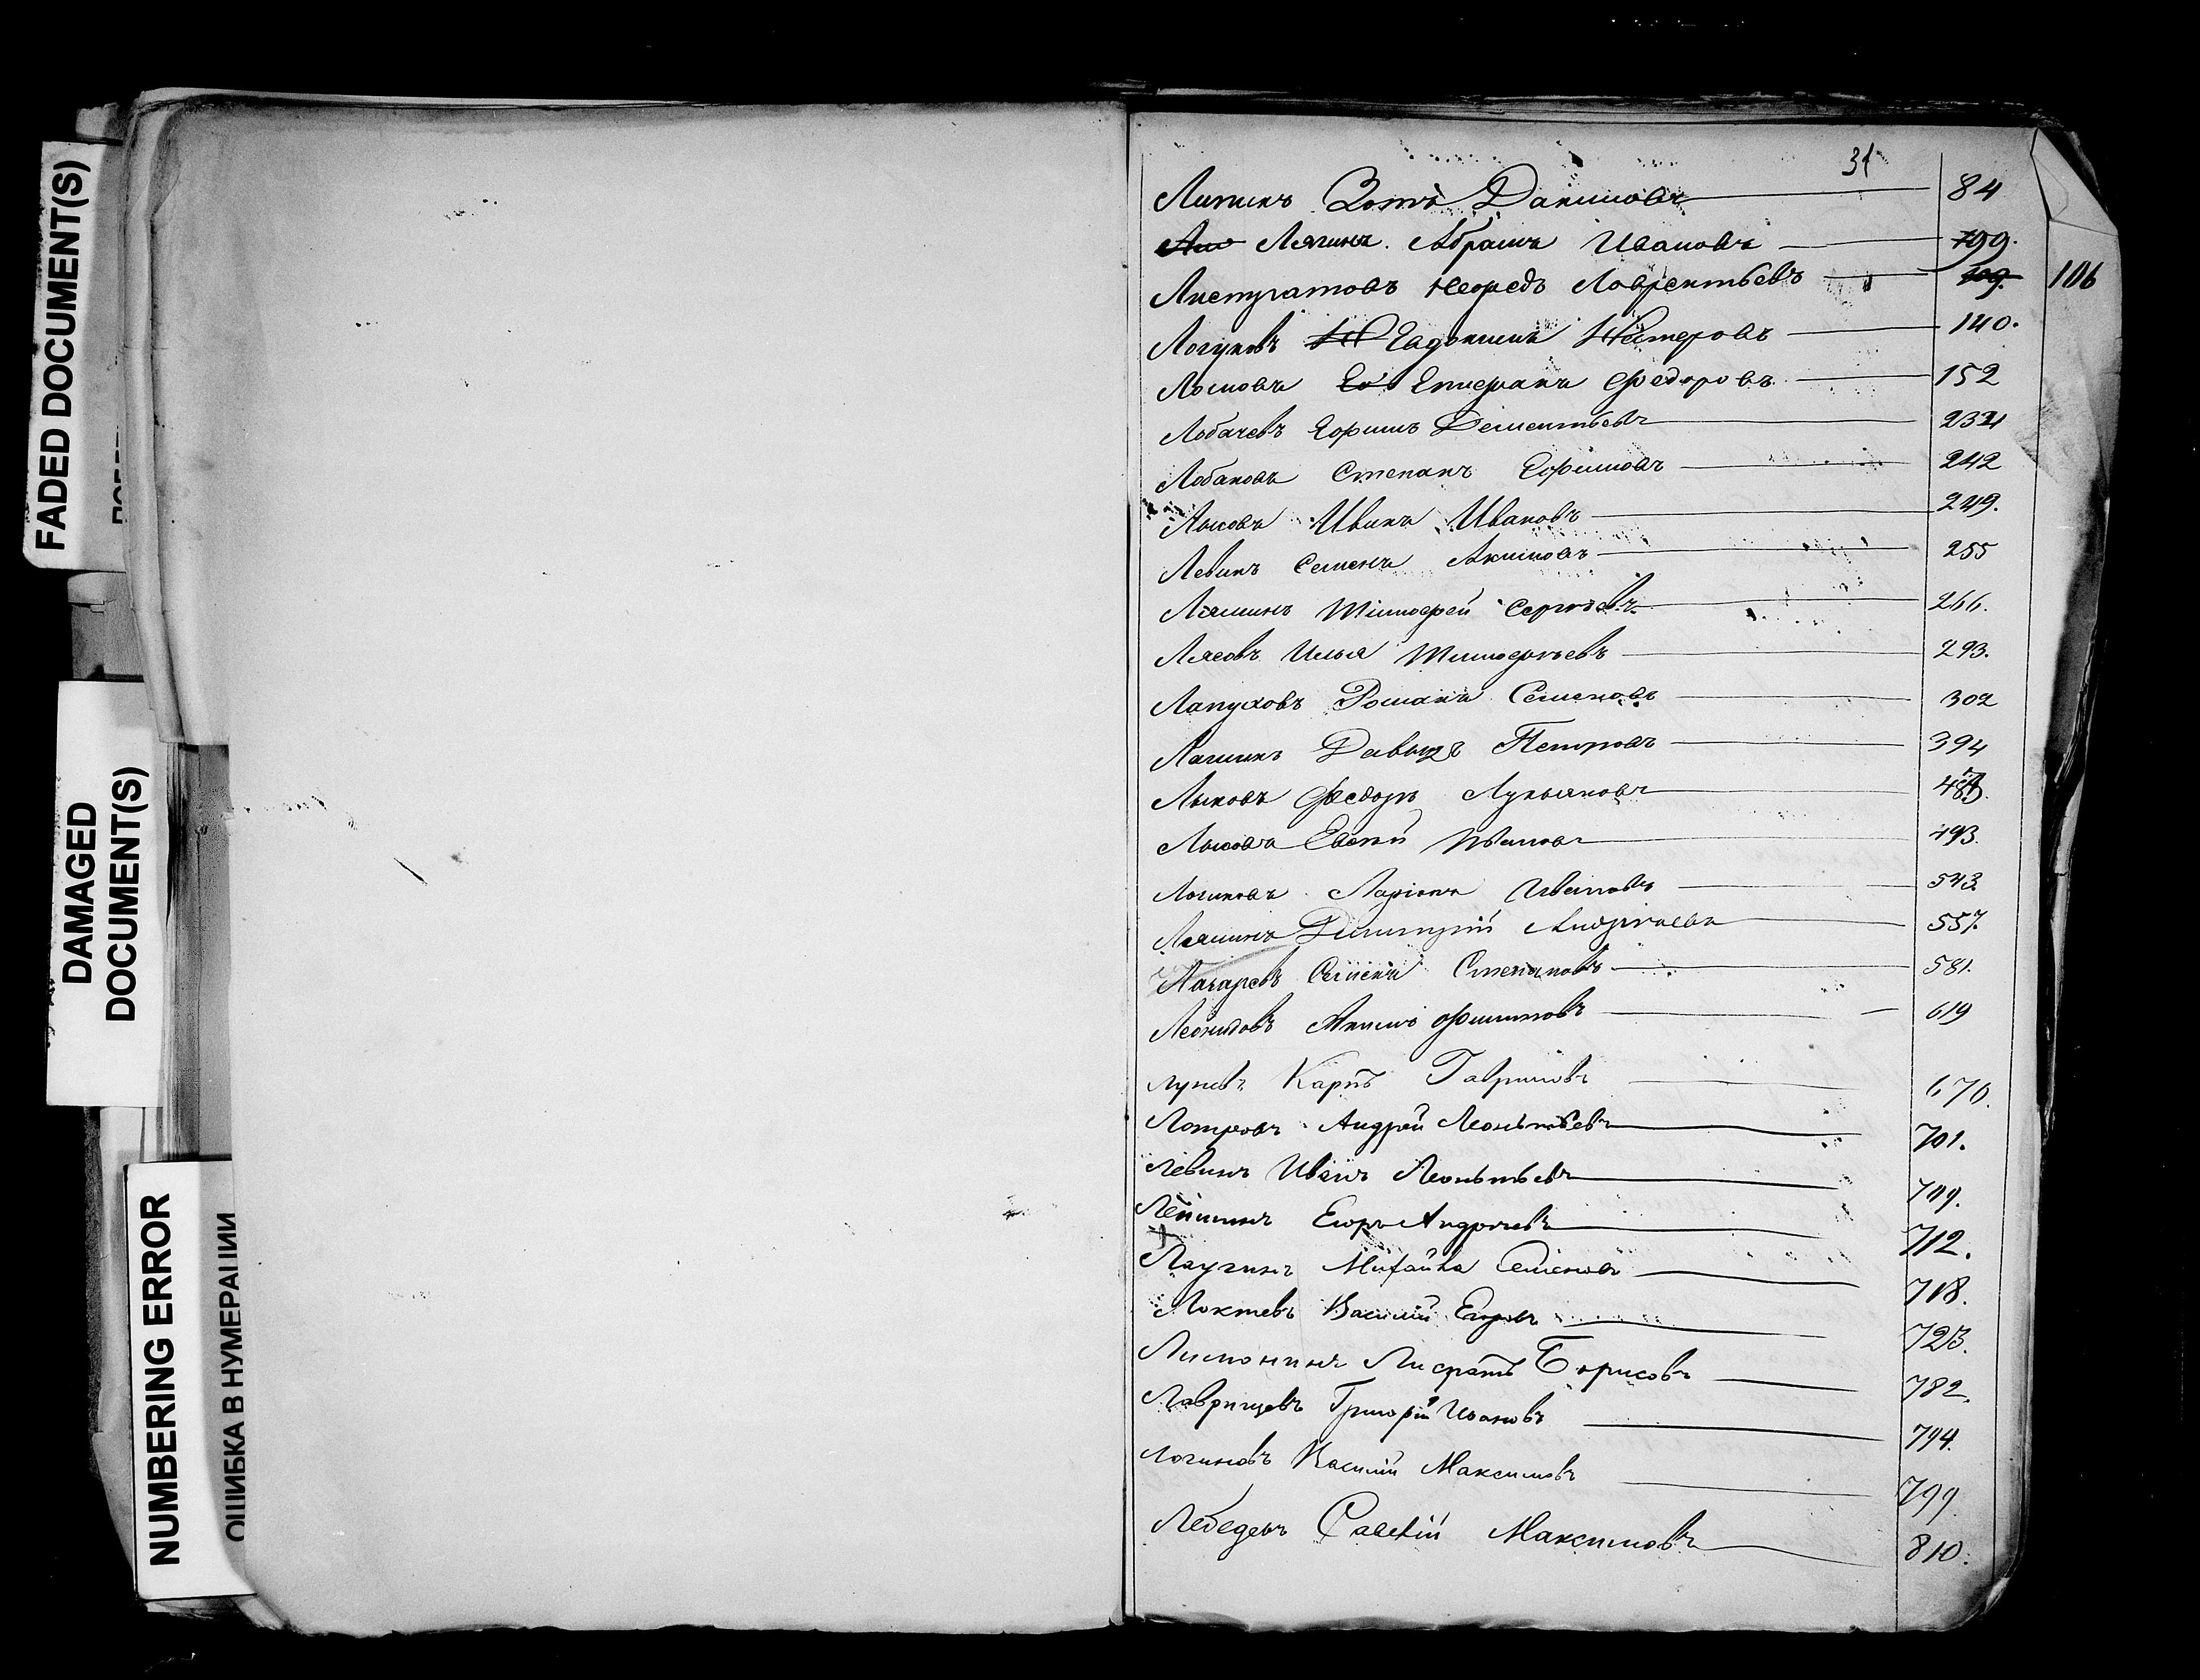 FADED DOCUMENT(S)
DAMAGED
DOCUMENT(S)
NUMBERING ERROR
ОШИБКА В НУМЕРАЦИИ
31
Липинъ Зотъ Даниловъ 84
Лягинъ. Абрамъ Ивановъ 99.
Листратовъ Нефедъ Лаврентьевъ 109. 106
Логуновъ Евдокимъ Нестеровъ 140.
Ломовъ Епифанъ Федоровъ 152
Лобачевъ Ефимъ Дементьевъ 234
Лобановъ Степанъ Ефимовъ 242
Лысовъ Иванъ Ивановъ 249.
Левинъ Семенъ Акимовъ 255
Ляминъ Тимофей Сергѣевъ 266.
Лясовъ Илья Тимофеѣевъ 293.
Лапуховъ Романъ Семеновъ 302
Лашинъ Давыдъ Петровъ 394
Лыковъ Федоръ Лукьяновъ
Лысовъ Ивановъ 493.
Логиновъ Ларіонъ Ивановъ 543.
Ляминъ Димитрій Андрѣевъ 557.
Лачаревъ Семенъ Степановъ 581.
Леонидовъ Акимъ Филиповъ 619
Луневъ Карпъ Гавриловъ 670.
Андрей Леонтьевъ 701.
Левинъ Иванъ Леонтьевъ 709.
Егоръ Андреевъ 712.
Михайла Семеновъ 718.
Локтевъ Василій Егоровъ 723.
Лимонинъ Борисовъ 782.
Лаврищевъ Григорій Ивановъ 794.
Логиновъ Василій Максимовъ 799
Лебедевъ Савелій Максимовъ 810.